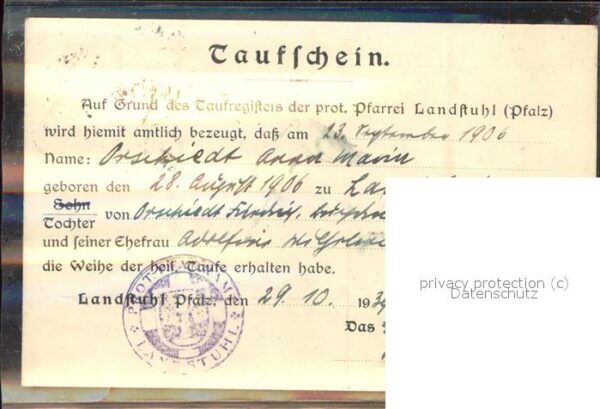 Taufschein.
Auf Grund des Taufregisters der prot. Pfarrei Landstuhl (Pfalz)
wird hiemit amtlich bezeugt, daß am 23. September 1906
Name: Orschiedt Anna Maria
geboren den 28. August 1906 zu La
Sohn
Tochter von Orschiedt
und seiner Ehefrau
die Weihe der heil. Taufe erhalten habe.
Landstuhl Pfalz, den 29. 10. 193
Das
PROT. LANDSTUHL
privacy protection (c)
Datenschutz